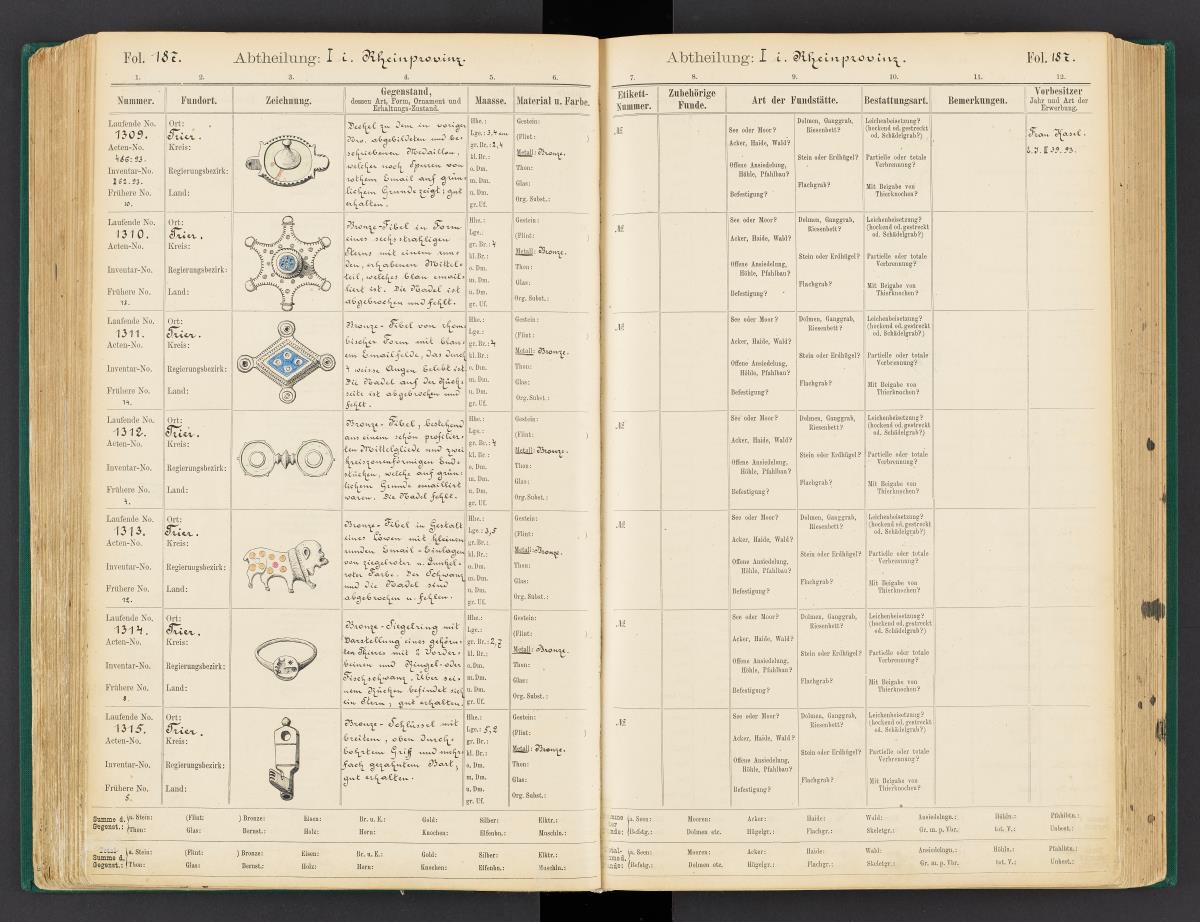 Fol. 187. Abtheilung: I i. Rheinprovinz.
1. 2. 3. 4. 5. 6.
Nummer. Fundort. Zeichnung. Gegenstand, dessen Art, Form, Ornament und Erhaltungs-Zustand. Maasse. Material u. Farbe.
Laufende No. 1309.
Acten-No. 466.93.
Inventar-No. II 62.93.
Frühere No. 10.
Ort: Trier.
Kreis:
Regierungsbezirk:
Land:
Deckel zu dem in voriger
Nro. abgebildeten und be-
schriebenen Medaillon,
welcher noch Spuren von
rothem Email auf grün-
lichem Grunde zeigt; gut
erhalten.
Hhe.:
Lge.: 3,4 cm
gr. Br.: 2,4
kl. Br.:
o. Dm.
m. Dm.
u. Dm.
gr. Uf.
Gestein:
(Flint: )
Metall: Bronze.
Thon:
Glas:
Org. Subst.:
Laufende No. 1310.
Acten-No.
Inventar-No.
Frühere No. 13.
Ort: Trier.
Kreis:
Regierungsbezirk:
Land:
Bronze-Fibel in Form
eines sechsstrahligen
Sterns mit einem run-
den, erhabenen Mittel-
teil, welches blau email-
liert ist. Die Nadel ist
abgebrochen und fehlt.
Hhe.:
Lge.:
gr. Br.: 4
kl. Br.:
o. Dm.
m. Dm.
u. Dm.
gr. Uf.
Gestein:
(Flint: )
Metall: Bronze.
Thon:
Glas:
Org. Subst.:
Laufende No. 1311.
Acten-No.
Inventar-No.
Frühere No. 14.
Ort: Trier.
Kreis:
Regierungsbezirk:
Land:
Bronze-Fibel von rhom
bischer Form mit blau-
em Emailfelde, das durch
4 weisse Augen belebt ist.
Die Nadel auf der Rück-
seite ist abgebrochen und
fehlt.
Hhe.:
Lge.:
gr. Br.: 4
kl. Br.:
o. Dm.
m. Dm.
u. Dm.
gr. Uf.
Gestein:
(Flint: )
Metall: Bronze.
Thon:
Glas:
Org. Subst.:
Laufende No. 1312.
Acten-No.
Inventar-No.
Frühere No. 4.
Ort: Trier.
Kreis:
Regierungsbezirk:
Land:
Bronze-Fibel, bestehend
aus einem schön profilier-
ten Mittelgliede und zwei
kreiszonenförmigen End-
stücken, welche auf grün-
lichem Grunde emailliert
waren. Die Nadel fehlt.
Hhe.:
Lge.:
gr. Br.: 4
kl. Br.:
o. Dm.
m. Dm.
u. Dm.
gr. Uf.
Gestein:
(Flint: )
Metall: Bronze.
Thon:
Glas:
Org. Subst.:
Laufende No. 1313.
Acten-No.
Inventar-No.
Frühere No. 12.
Ort: Trier.
Kreis:
Regierungsbezirk:
Land:
Bronze-Fibel in Gestalt
eines Löwen mit kleinen
runden Email-Einlagen
von ziegelroter u. dunkel-
roter Farbe. Der Schwanz
und die Nadel sind
abgebrochen u. fehlen.
Hhe.:
Lge.: 3,5
gr. Br.:
kl. Br.:
o. Dm.
m. Dm.
u. Dm.
gr. Uf.
Gestein:
(Flint: )
Metall: Bronze.
Thon:
Glas:
Org. Subst.:
Laufende No. 1314.
Acten-No.
Inventar-No.
Frühere No. 8.
Ort: Trier.
Kreis:
Regierungsbezirk:
Land:
Bronze-Siegelring mit
Darstellung eines gehörn-
ten Thieres mit 2 Vorder-
beinen und Ringel- oder
Fischschwanz. Über sei-
nem Rücken befindet sich
ein Stern; gut erhalten.
Hhe.:
Lge.:
gr. Br.: 2,7
kl. Br.:
o. Dm.
m. Dm.
u. Dm.
gr. Uf.
Gestein:
(Flint: )
Metall: Bronze.
Thon:
Glas:
Org. Subst.:
Laufende No. 1315.
Acten-No.
Inventar-No.
Frühere No. 5.
Ort: Trier.
Kreis:
Regierungsbezirk:
Land:
Bronze-Schlüssel mit
breitem, oben durch-
bohrtem Griff und mehr-
fach gezahntem Bart;
gut erhalten.
Hhe.:
Lge.: 5,2
gr. Br.:
kl. Br.:
o. Dm.
m. Dm.
u. Dm.
gr. Uf.
Gestein:
(Flint: )
Metall: Bronze.
Thon:
Glas:
Org. Subst.:
Summe d. Gegenst.: a. Stein: (Flint: ) Bronze: Eisen: Br. u. E.: Gold: Silber: Elktr.:
Thon: Glas: Bernst.: Holz: Horn: Knochen: Elfenbn.: Muschln.:
Summe d. Gegenst.: a. Stein: (Flint: ) Bronze: Eisen: Br. u. E.: Gold: Silber: Elktr.:
Thon: Glas: Bernst.: Holz: Horn: Knochen: Elfenbn.: Muschln.:
Abtheilung: I i. Rheinprovinz. Fol. 187.
7. 8. 9. 10. 11. 12.
Etikett-Nummer. Zubehörige Funde. Art der Fundstätte. Bestattungsart. Bemerkungen. Vorbesitzer Jahr und Art der Erwerbung.
See oder Moor?
Acker, Haide, Wald?
Offene Ansiedelung, Höhle, Pfahlbau?
Befestigung?
Dolmen, Ganggrab, Riesenbett?
Stein oder Erdhügel?
Flachgrab?
Leichenbeisetzung? (hockend od. gestreckt od. Schädelgrab?)
Partielle oder totale Verbrennung?
Mit Beigabe von Thierknochen?
Frau Kasel.
See oder Moor?
Acker, Haide, Wald?
Offene Ansiedelung, Höhle, Pfahlbau?
Befestigung?
Dolmen, Ganggrab, Riesenbett?
Stein oder Erdhügel?
Flachgrab?
Leichenbeisetzung? (hockend od. gestreckt od. Schädelgrab?)
Partielle oder totale Verbrennung?
Mit Beigabe von Thierknochen?
See oder Moor?
Acker, Haide, Wald?
Offene Ansiedelung, Höhle, Pfahlbau?
Befestigung?
Dolmen, Ganggrab, Riesenbett?
Stein oder Erdhügel?
Flachgrab?
Leichenbeisetzung? (hockend od. gestreckt od. Schädelgrab?)
Partielle oder totale Verbrennung?
Mit Beigabe von Thierknochen?
See oder Moor?
Acker, Haide, Wald?
Offene Ansiedelung, Höhle, Pfahlbau?
Befestigung?
Dolmen, Ganggrab, Riesenbett?
Stein oder Erdhügel?
Flachgrab?
Leichenbeisetzung? (hockend od. gestreckt od. Schädelgrab?)
Partielle oder totale Verbrennung?
Mit Beigabe von Thierknochen?
See oder Moor?
Acker, Haide, Wald?
Offene Ansiedelung, Höhle, Pfahlbau?
Befestigung?
Dolmen, Ganggrab, Riesenbett?
Stein oder Erdhügel?
Flachgrab?
Leichenbeisetzung? (hockend od. gestreckt od. Schädelgrab?)
Partielle oder totale Verbrennung?
Mit Beigabe von Thierknochen?
See oder Moor?
Acker, Haide, Wald?
Offene Ansiedelung, Höhle, Pfahlbau?
Befestigung?
Dolmen, Ganggrab, Riesenbett?
Stein oder Erdhügel?
Flachgrab?
Leichenbeisetzung? (hockend od. gestreckt od. Schädelgrab?)
Partielle oder totale Verbrennung?
Mit Beigabe von Thierknochen?
See oder Moor?
Acker, Haide, Wald?
Offene Ansiedelung, Höhle, Pfahlbau?
Befestigung?
Dolmen, Ganggrab, Riesenbett?
Stein oder Erdhügel?
Flachgrab?
Leichenbeisetzung? (hockend od. gestreckt od. Schädelgrab?)
Partielle oder totale Verbrennung?
Mit Beigabe von Thierknochen?
a. Seen: Mooren: Acker: Haide: Wald: Ansiedelngn.: Höhln.: Pfahlbtn.:
Befstg.: Dolmen etc. Hügelgr.: Flachgr.: Skeletgr.: Gr. m. p. Vbr. tot. V.: Unbest.:
a. Seen: Mooren: Acker: Haide: Wald: Ansiedelngn.: Höhln.: Pfahlbtn.:
Befstg.: Dolmen etc. Hügelgr.: Flachgr.: Skeletgr.: Gr. m. p. Vbr. tot. V.: Unbest.: